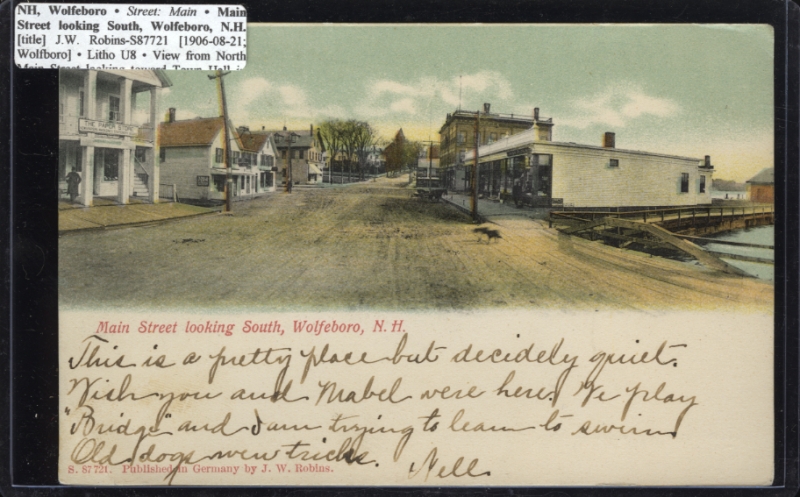 NH, Wolfeboro • Street: Main • Main
Street looking South, Wolfeboro, N.H.
[title] J.W. Robins-S87721 [1906-08-21;
Wolfboro] • Litho U8 • View from North
Main Street looking toward Town Hall
THE
Main Street looking South, Wolfeboro, N. H.
This is a pretty place but decidely quiet.
Wish you and Mabel were here. We play
"Bridge" and I am trying to learn to swim
Old dogs new tricks.
Nell
S. 87721. Published in Germany by J. W. Robins.